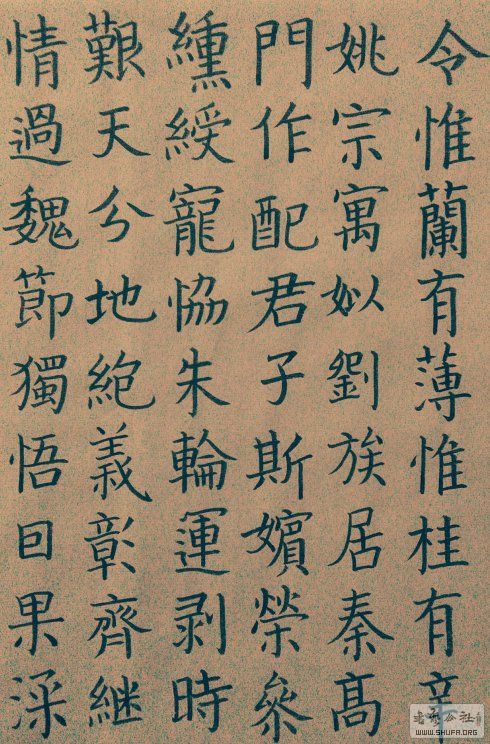 令惟蘭有薄惟桂有辛
姚宗寓姒劉族居秦髙
門作配君子斯嬪榮叅
纁綬寵恊朱輪運剥時
艱天兮地絶義彰齊継
情過魏節獨悟日果深
書法公社
WWW.SHUFA.ORG